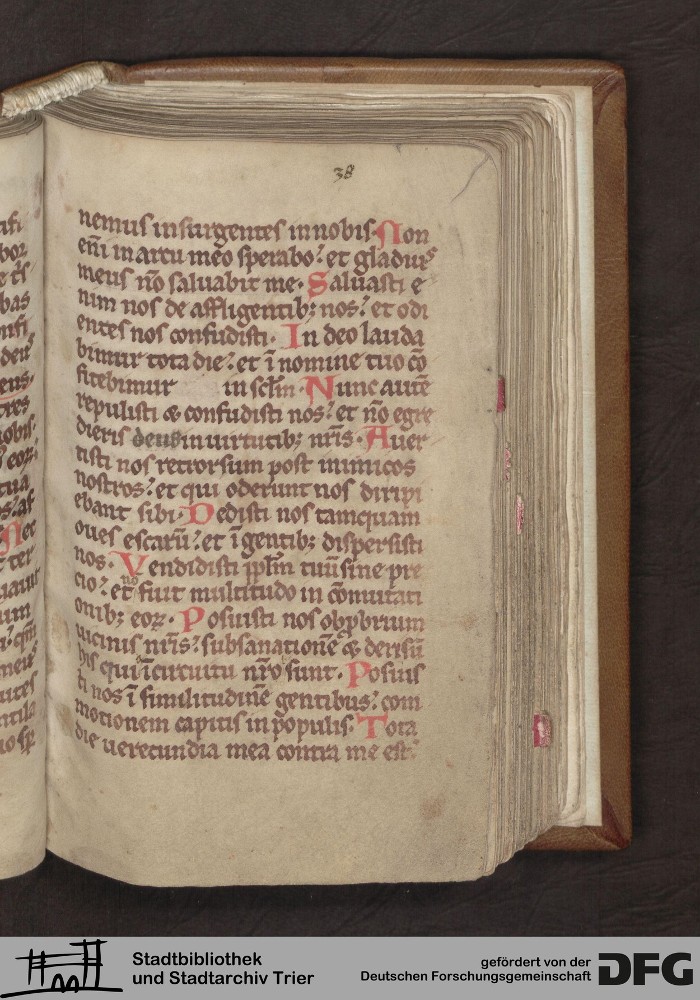 38
nemus insurgentes in nobis. Non
eni̅ in arcu meo sperabo: et gladius
meus no̅ saluabit me. Saluasti e
nim nos de affligentib; nos: et odi
entes nos confudisti. In deo lauda
bimur tota die: et i̅ nomine tuo co̅
fitebimur in sc̅lm. Nunc aute̅
repulisti & confudisti nos: et no̅ egre
dieris deus in uirtutib; nr̅is. Auer
tisti nos retrorsum post inimicos
nostros: et qui oderunt nos diripi
ebant sibi. Dedisti nos tamquam
oues escaru̅: et i̅ gentib; dispersisti
nos. Vendidisti pp̅lm tuu̅ sine pre
cio: et no̅ fiut multitudo in co̅mutati
onib; eoꝝ. Posuisti nos obp̱brium
uicinis nr̅is: subsanatione̅ & derisu̅
his qui i̅ circuitu nr̅o sunt. Posuis
ti nos i̅ similitudine̅ gentibus: com
motionem capitis in populis. Tota
die uerecundia mea contra me est.
Stadtbibliothek
und Stadtarchiv Trier
gefördert von der
Deutschen Forschungsgemeinschaft
DFG